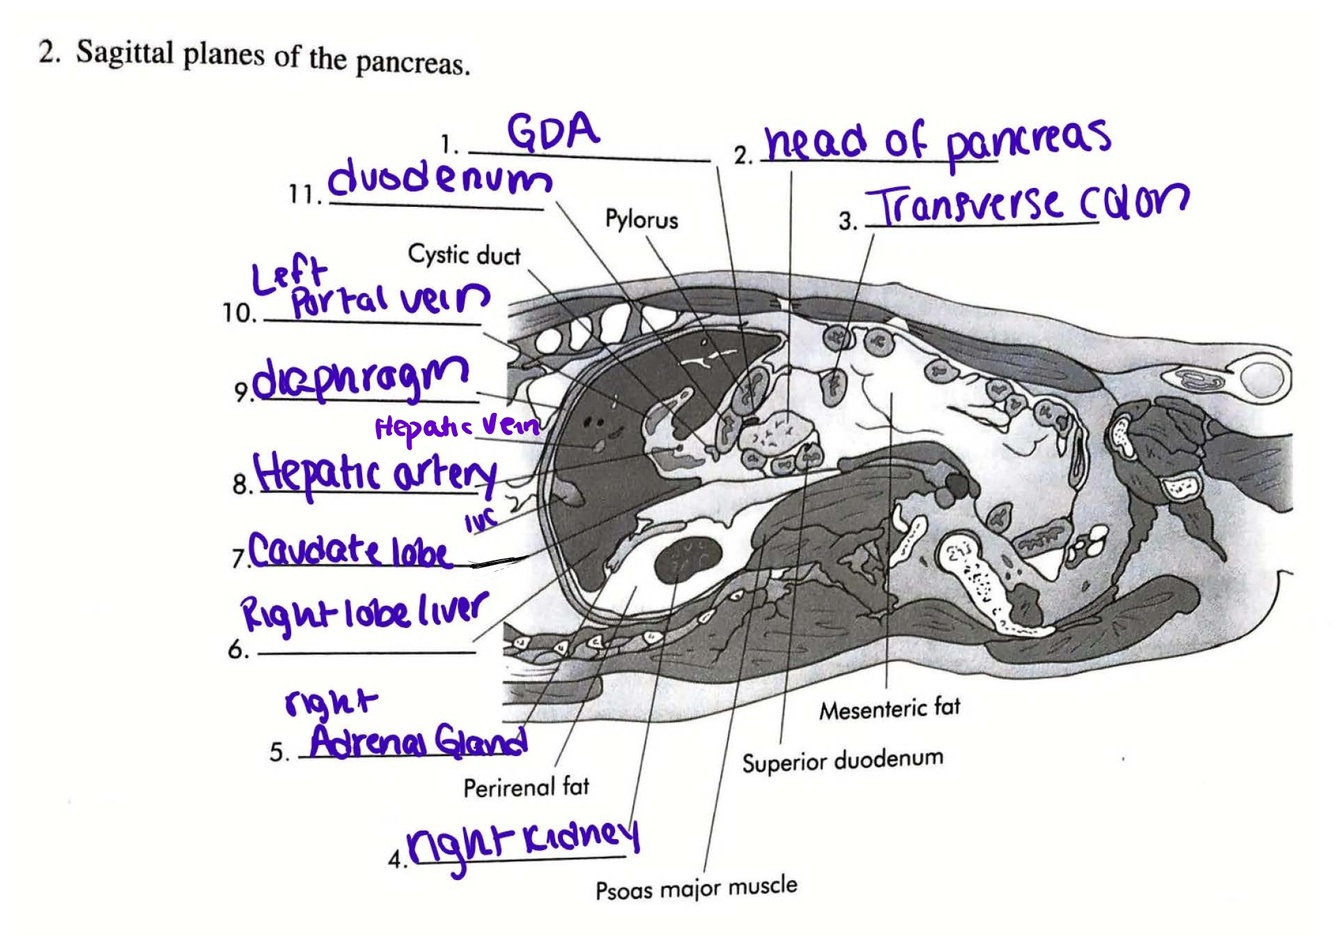 2. Sagittal planes of the pancreas.
1. GDA
2. head of pancreas
11. duodenum
3. Transverse colon
Pylorus
Cystic duct
Left
10. Portal vein
9. diaphragm
Hepatic vein
8. Hepatic artery
IVC
7. Caudate lobe
Right lobe liver
6.
right
5. Adrenal Gland
Mesenteric fat
Superior duodenum
Perirenal fat
4. right kidney
Psoas major muscle